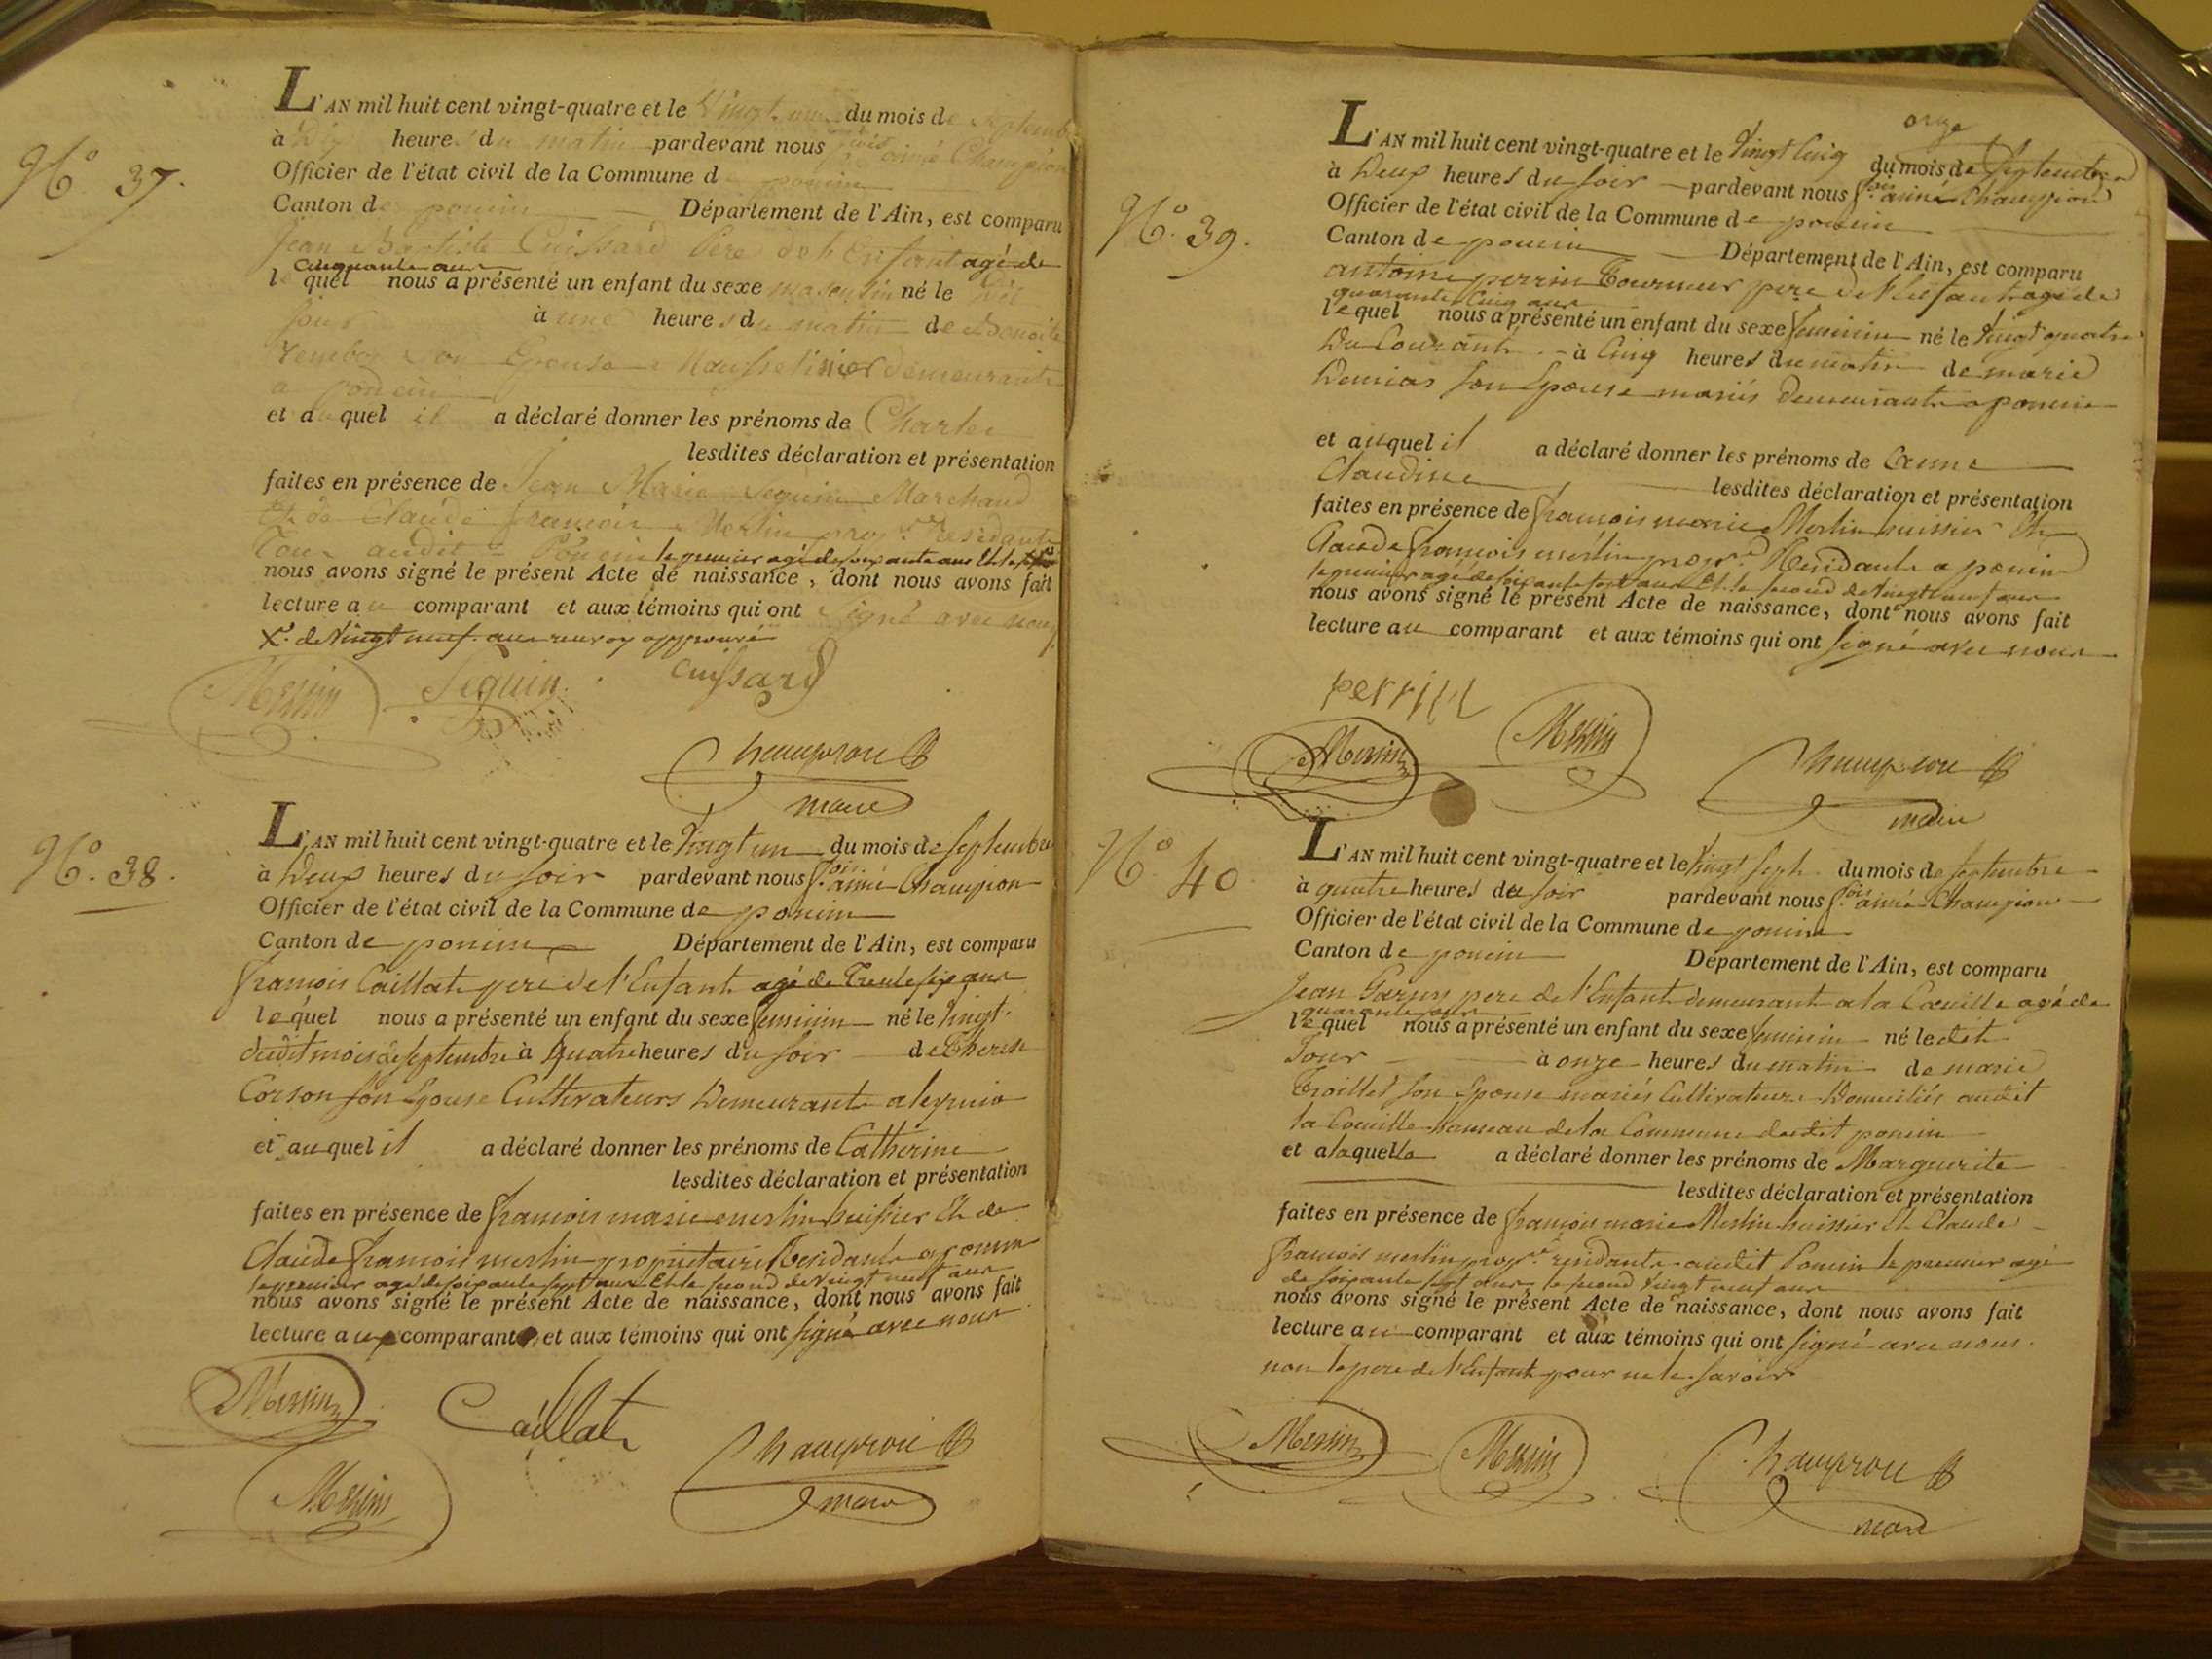 N.º 37.
L'AN mil huit cent vingt-quatre et le Vingt un du mois de Septembre
à Dix heures du matin pardevant nous f.ois aimé Champion
Officier de l'état civil de la Commune de poncin
Canton de poncin Département de l'Ain, est comparu
Jean Baptiste Cuissard Père de l'Enfant agé de
cinquante ans
lequel nous a présenté un enfant du sexe masculin né le dit
jour à une heures du matin de Benoite
son Epouse demeurants
a poncin
et auquel il a déclaré donner les prénoms de Charles
lesdites déclaration et présentation
faites en présence de Jean Marie Seguin Marchand
Et de Claude francois Merlin prop.re residants
Tous audit Poncin le premier agé de soixante ans Et le
nous avons signé le présent Acte de naissance, dont nous avons fait
lecture au comparant et aux témoins qui ont Signé avec nous
X. de Vingt neuf ans renvoy approuvé
Merlin Seguin Cuissard
Champion
maire
N.º 38.
L'AN mil huit cent vingt-quatre et le Vingt un du mois de Septembre
à Deux heures du soir pardevant nous f.ois aimé Champion
Officier de l'état civil de la Commune de poncin
Canton de poncin Département de l'Ain, est comparu
francois Caillat pere de l'Enfant agé de Trente six ans
lequel nous a présenté un enfant du sexe feminin né le Vingt
dudit mois de septembre à Quatre heures du soir de Therese
Corson son Epouse Cultivateurs Demeurants a leymia
et auquel il a déclaré donner les prénoms de Catherine
lesdites déclaration et présentation
faites en présence de francois marie merlin huissier Et de
Claude francois merlin proprietaire Residants a poncin
le premier agé de soixante sept ans Et le second de Vingt neuf ans
nous avons signé le présent Acte de naissance, dont nous avons fait
lecture aux comparants et aux témoins qui ont signé avec nous
Merlin Caillat
Champion
Merlin maire
N.º 39.
L'AN mil huit cent vingt-quatre et le Vingt Cinq du mois de Septembre
à Deux heures du soir pardevant nous f.ois aimé Champion
Officier de l'état civil de la Commune de poncin
Canton de poncin Département de l'Ain, est comparu
antoine perrin Tourneur pere de l'Enfant agé de
quarante Cinq ans
lequel nous a présenté un enfant du sexe feminin né le Vingt quatre
Du Courant à Cinq heures du matin de marie
Demias son Epouse mariés Demeurants a poncin
et auquel il a déclaré donner les prénoms de
Claudine lesdites déclaration et présentation
faites en présence de francois marie Merlin huissier Et
Claude francois merlin prop.re Residants a poncin
le premier agé de soixante sept ans Et le second de Vingt neuf ans
nous avons signé le présent Acte de naissance, dont nous avons fait
lecture au comparant et aux témoins qui ont signé avec nous
perrin
Merlin Merlin Champion
maire
N.º 40
L'AN mil huit cent vingt-quatre et le Vingt Sept du mois de septembre
à quatre heures du soir pardevant nous f.ois aimé Champion
Officier de l'état civil de la Commune de poncin
Canton de poncin Département de l'Ain, est comparu
Jean pere de l'Enfant demeurant a la Coeuille agé de
quarante ans
lequel nous a présenté un enfant du sexe feminin né ledit
Jour à onze heures du matin de marie
Troillet son Epouse mariés Cultivateurs Domiciliés audit
la Coeuille hameau de la Commune dudit poncin
et a laquelle a déclaré donner les prénoms de Marguerite
lesdites déclaration et présentation
faites en présence de francois marie Merlin huissier Et Claude
francois merlin prop.re residants audit Poncin le premier agé
de soixante sept ans le second Vingt neuf ans
nous avons signé le présent Acte de naissance, dont nous avons fait
lecture au comparant et aux témoins qui ont signé avec nous
non le pere de l'Enfant pour ne le savoir
Merlin Merlin Champion
maire